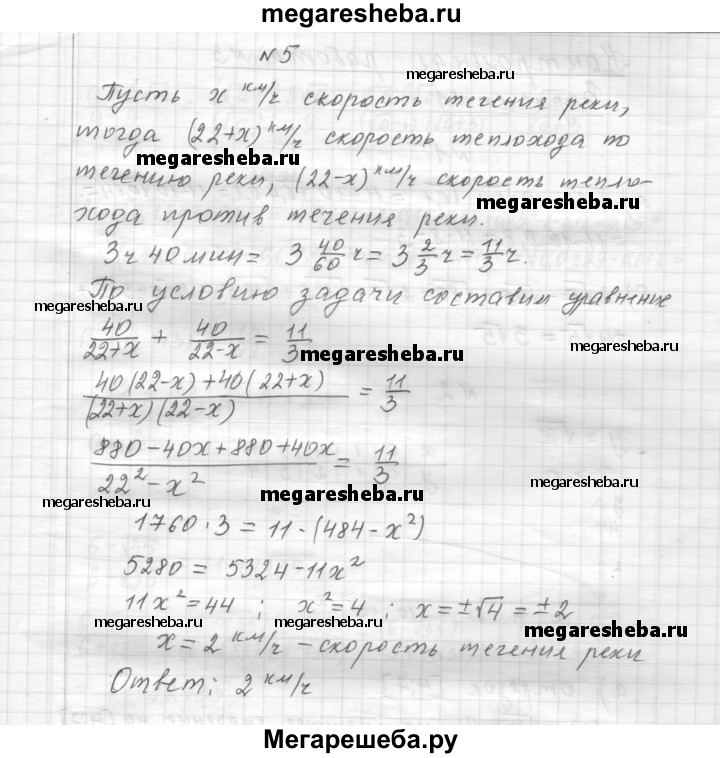 megaresheba.ru
№5
megaresheba.ru
Пусть x км/ч скорость течения реки,
тогда (22+x) км/ч скорость теплохода по
megaresheba.ru
течению реки, (22-x) км/ч скорость тепло-
megaresheba.ru
хода против течения реки.
3ч 40мин = 3 40/60 ч = 3 2/3 ч = 11/3 ч.
По условию задачи составим уравнение
megaresheba.ru
40/(22+x) + 40/(22-x) = 11/3
megaresheba.ru
(40(22-x)+40(22+x))/((22+x)(22-x)) = 11/3
(880-40x+880+40x)/(22²-x²) = 11/3
megaresheba.ru
megaresheba.ru
megaresheba.ru
1760·3 = 11·(484-x²)
5280 = 5324-11x²
11x²=44 ; x²=4 ; x=±√4=±2
megaresheba.ru
megaresheba.ru
megaresheba.ru
x=2 км/ч – скорость течения реки
Ответ: 2 км/ч
Мегарешеба.ру